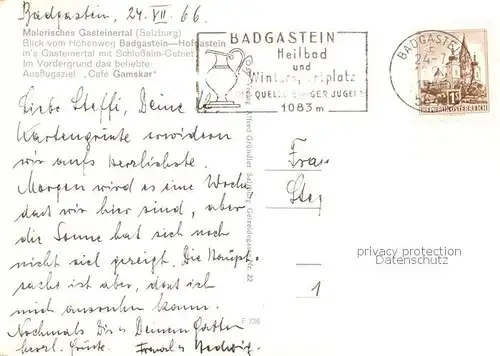 Badgastein, 24. VII. 66.
Malerisches Gasteinertal (Salzburg)
Blick vom Höhenweg Badgastein—Hofgastein
m's Gasteinertal mit Schloßalm-Gebiet
Im Vordergrund das beliebte
Ausflugsziel „Café Gamskar"
BADGASTEIN
Heilbad
und
Wintersportplatz
QUELLE EWIGER JUGEND
1083 m
BADGASTEIN
24.-7.
1S
REPUBLIK ÖSTERREICH
Liebe Steffi, Deine
Kartengrüße erwidern
wir aufs herzlichste.
Morgen wird es eine Woche
daß wir hier sind, aber
die Sonne hat sich noch
nicht viel gezeigt. Die Haupt-
sache ist aber, daß ich
mich ausruhen kann.
Nochmals Dir & Deinem Gatten
herzl. Grüße. Hedwig
Frau
Alfred Gründler Salzburg Getreidegasse Nr. 22
F 736
1
privacy protection
www.ansichtskarten-center.de